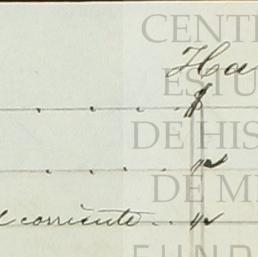 CENT
Ha
ESTU
$
DE HIS
"
DE M
corriente . . "
FUND